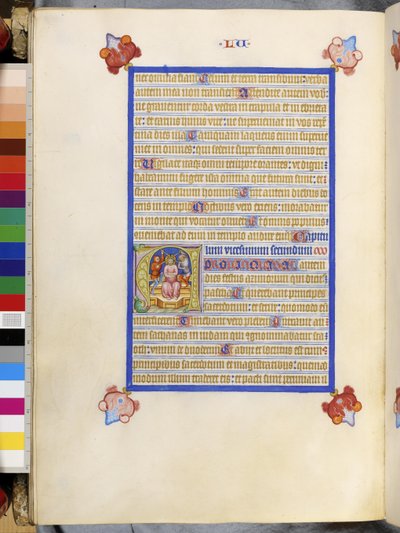 LU
nec omnia fiant Celum et terra transibunt: verba
autem mea non transient Attendite autem vob
ne graventur corda vestra in crapula et in ebrieta
te: et curis huius vite: ne superveniat in vos repe
tina dies illa Tamquam laqueus enim superve
niet in omnes: qui sedent super faciem omnis ter
re Vigilate itaque omni tempore orantes: ut digni
habeamini fugere ista omnia que futura sunt: et
stare ante filium hominis Erat autem diebus do
cens in templo Noctibus vero exiens: morabatur
in monte qui vocatur oliveti Et omnis populus
manicabat ad eum in templo audire eum Capitu
lum vicesimum secundum XXII
autem
dies festus azimorum qui dici
pascha Et querebant principes
sacerdotum: et scribe: quomodo eu
interficerent Timebant vero plebem Intravit au
tem sathanas in iudam qui cognominabatur sca
rioth: unum de duodecim Et abiit et locutus est cum
principibus sacerdotum et magistratibus: quemad
modum illum traderet eis: et pacti sunt pecuniam il